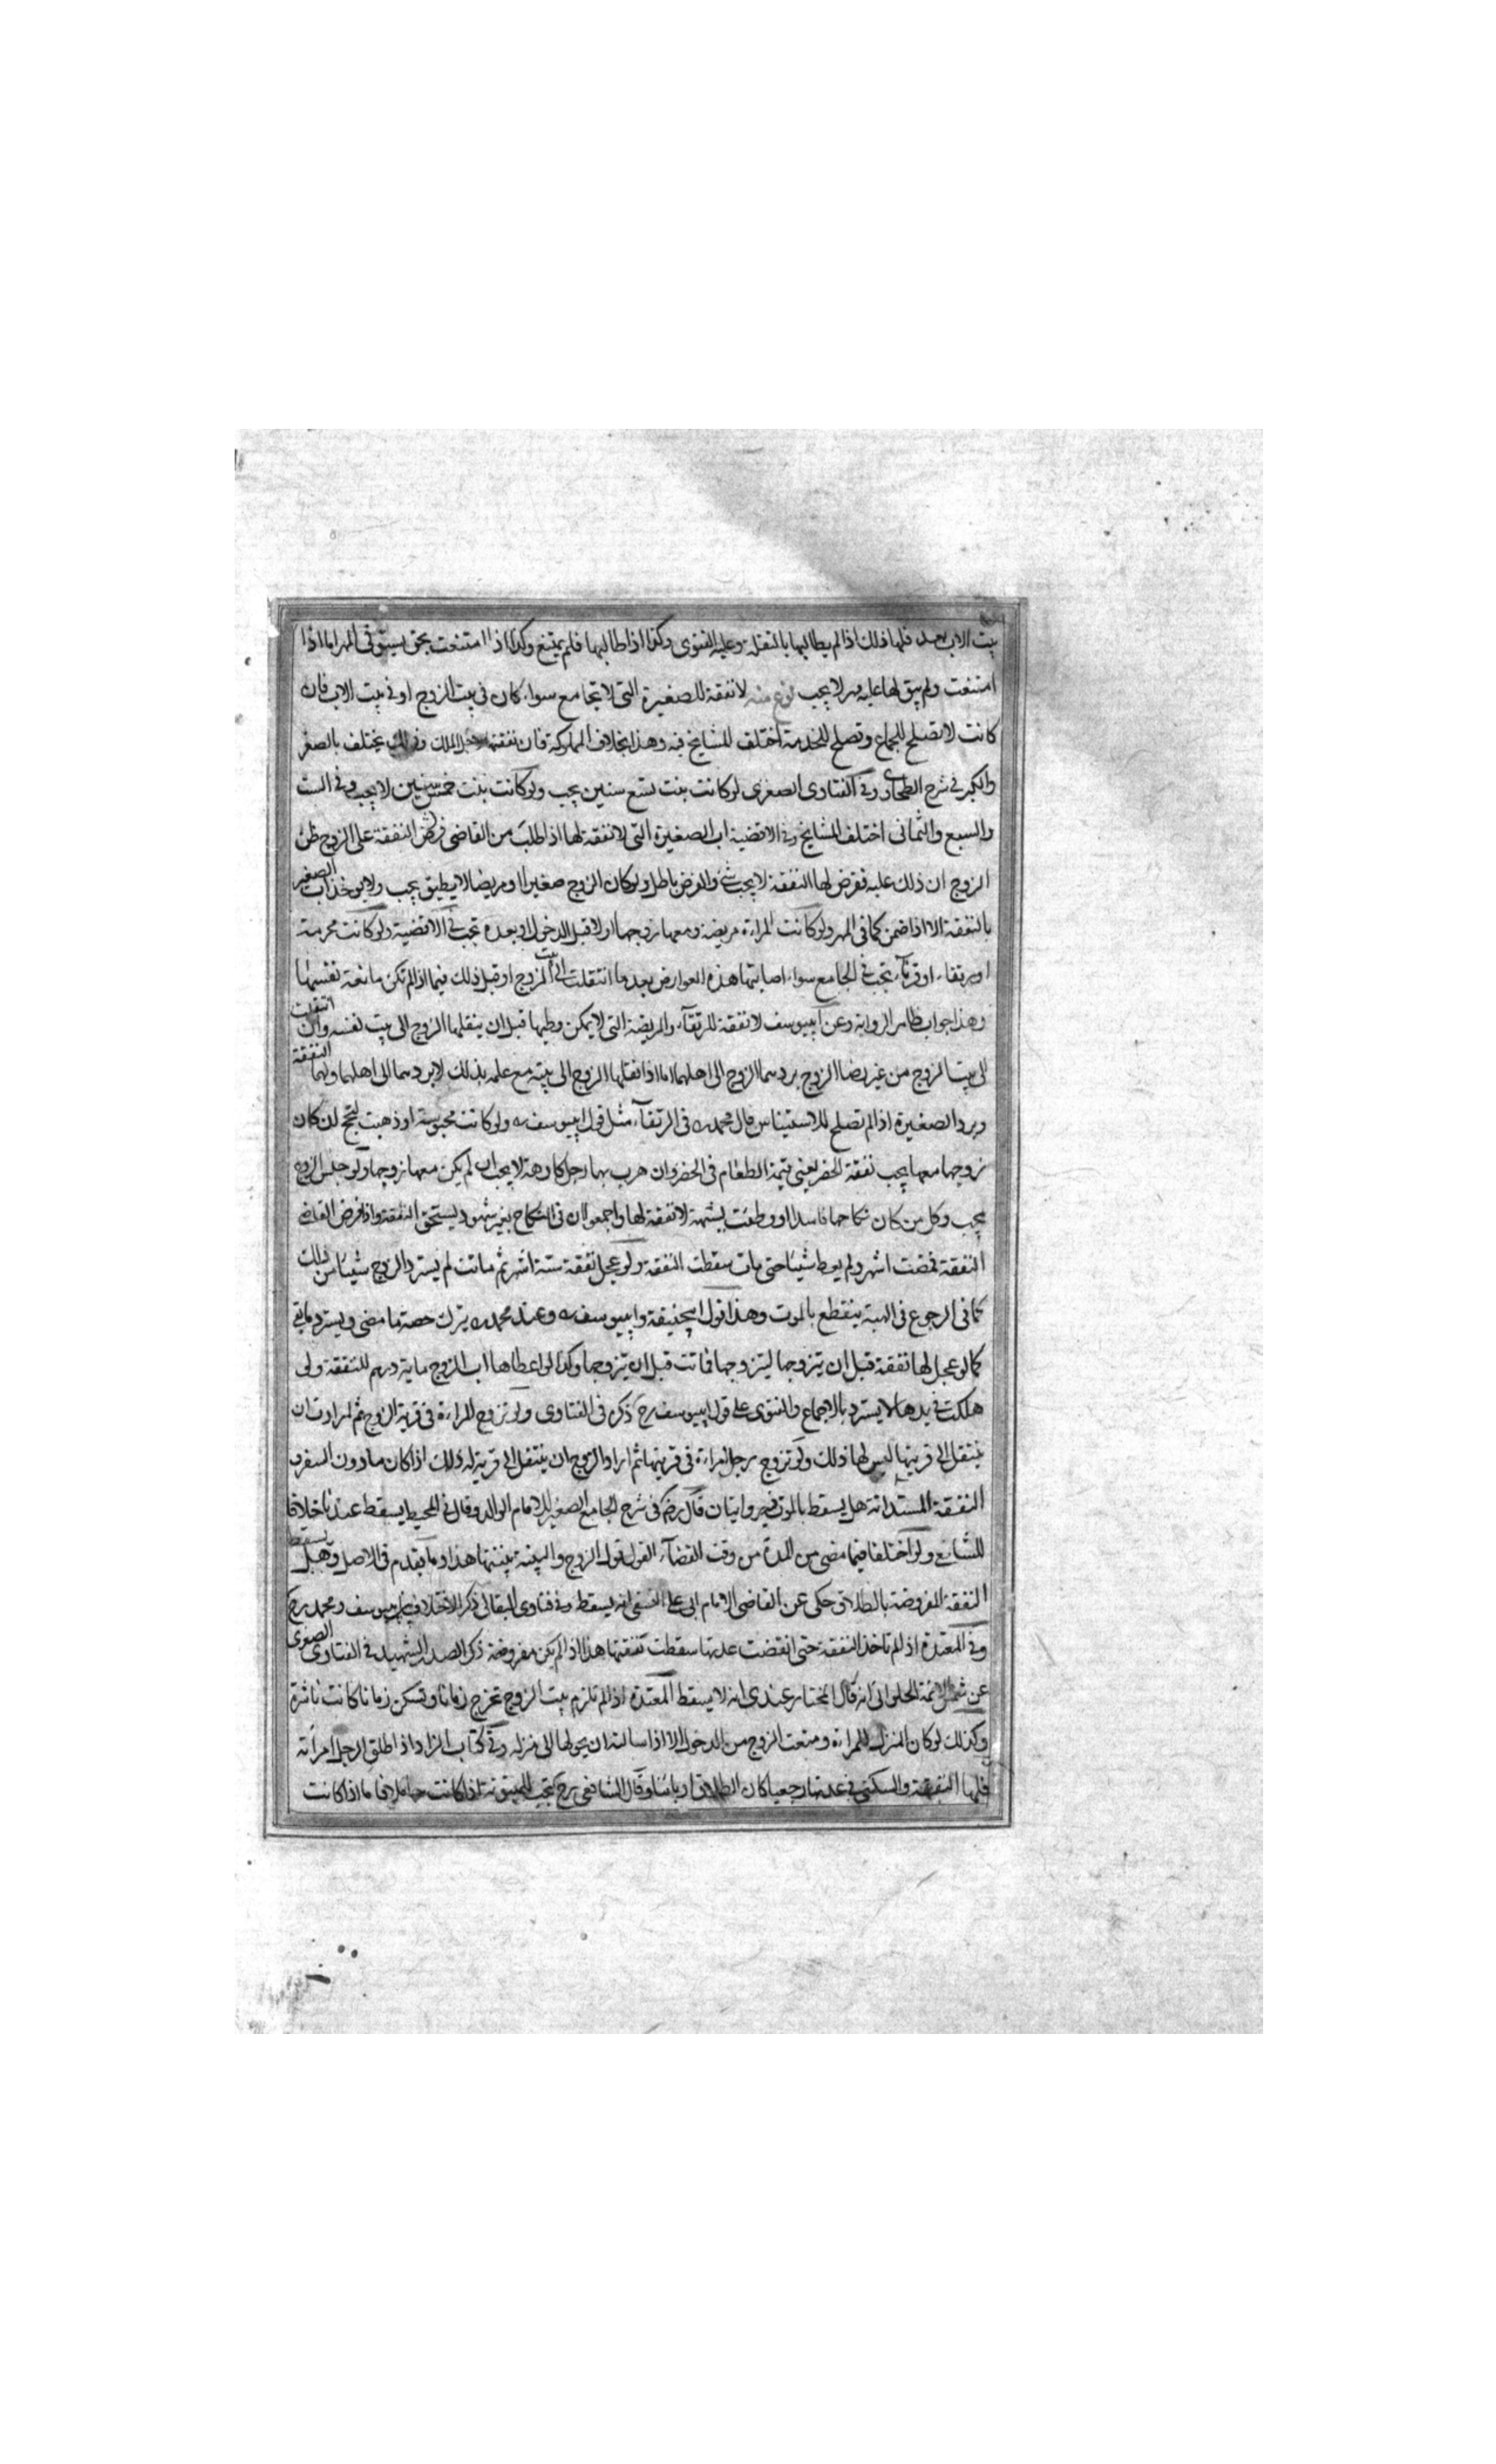 بيت الاب بعد فلها ذلك اذا لم يطالبها بالنقلة وعليه الفتوى وكذا اذا طالبها فلم يمتنع وكذا اذا امتنعت بحق يستوفى المهر اما اذا
امتنعت ولم يبق لها عليه مهر لا يجب نوع منه لا نفقة للصغيرة التي لا تجامع سواء كان في بيت الزوج او في بيت الاب فان
كانت لا تصلح للجماع وتصلح للخدمة اختلف المشايخ فيه وهذا بخلاف المملوكة فان نفقتها لاجل الملك وذلك لا يختلف بالصغر
والكبر في شرح الطحاوى وفي الفتاوى الصغرى لو كانت بنت تسع سنين يجب ولو كانت بنت خمس سنين لا يجب وفي الست
والسبع والثمانى اختلف المشايخ وفي الاقضية اب الصغيرة التي لا نفقة لها اذا طلب من القاضى فرض النفقة على الزوج ظن
الزوج ان ذلك عليه ففرض لها النفقة لا يجب شئ والفرض باطل ولو كان الزوج صغيرا او مريضا لا يطيق يجب ولا يوخذ اب الصغير
بالنفقة الا اذا ضمن كما في المهر ولو كانت المراءة مريضة ومعها زوجها او لا قبل الدخول او بعده تجب في الاقضية ولو كانت محرمة
او رتقاء او قرناء تجب في الجامع سواء اصابتها هذه العوارض بعد ما انتقلت الى بيت الزوج او قبل ذلك فيما اذا لم تكن مانعة نفسها
وهذا جواب ظاهر الرواية وعن ابييوسف لا نفقة للرتقاء والمريضة التي لا يمكن وطيها قبل ان ينقلها الزوج الى بيت نفسه وان انتقلت
الى بيت الزوج من غير رضا الزوج يردهما الزوج الى اهلهما اما اذا نقلها الزوج الى بيته مع علمه بذلك لا يردهما الى اهلهما ولهما النفقة
ويرد الصغيرة اذا لم تصلح للاستيناس قال محمد ره في الرتقاء مثل قول ابييوسف ره ولو كانت محبوسة او ذهبت لتحج ان كان
زوجها معها يجب نفقة الحضر يعني قيمة الطعام في الحضر وان هرب بها رجل كارهة لا يجب ان لم يكن معها زوجها ولو حبس الزوج
يجب وكل من كان نكاحها فاسدا او وطئت بشبهة لا نفقة لها واجمعوا ان في النكاح بغير شهود يستحق النفقة واذا فرض القاضى
النفقة فمضت اشهر ولم يعط شيئا حتى مات سقطت النفقة ولو عجل نفقة ستة اشهر ثم ماتت لم يسترد الزوج شيئا من ذلك
كما في الرجوع في الهبة ينقطع بالموت وهذا قول ابيحنيفة وابييوسف ره وعند محمد ره يترك حصة ما مضى ويسترد ما بقي
كما لو عجل لها نفقة قبل ان يتزوجها ليتزوجها فماتت قبل ان يتزوجها وكذا لو اعطاها اب الزوج ماية درهم للنفقة ولى
هلكت في يدها لا يسترد بالاجماع والفتوى على قول ابييوسف رح ذكره في الفتاوى ولو تزوج المراءة في قرية الزوج ثم ارادت ان
ينتقل الى قريتها ليس لها ذلك ولو تزوج رجل امراءة في قريتها ثم اراد الزوج ان ينتقل الى قرية له ذلك اذا كان ما دون السفر
النفقة المستدانة هل يسقط بالموت فيه روايتان قال رضي في شرح الجامع الصغير للامام الوالد وقال في المحيط يسقط عندنا خلافا
للشافعي ولو اختلفا فيما مضى من المدة من وقت القضاء القول قول الزوج والبينة بينتها هذا وما تقدم في الاصل وهل يسقط
النفقة المفروضة بالطلاق حكى عن القاضى الامام ابى على النسفى انه يسقط وفي فتاوى البقالى ذكر الاختلاف بين ابييوسف ومحمد رح
وفي المعتدة اذا لم تاخذ النفقة حتى انقضت عدتها سقطت نفقتها هذا اذا لم يكن مفروضة ذكر الصدر الشهيد في الفتاوى الصغرى
عن شمس الائمة الحلوانى انه قال المختار عندى انه لا يسقط المعتدة اذا لم تلزم بيت الزوج تخرج زمانا وتسكن زمانا كانت ناشزة
وكذلك لو كان المنزل للمراءة ومنعت الزوج من الدخول الا اذا سالته ان يحولها الى منزله وفي كتاب الزاد اذا طلق الرجل امرأته
فلها النفقة والسكنى في عدتها رجعيا كان الطلاق او باينا وقال الشافعي رح تجب للمبتوتة اذا كانت حاملا فاما اذا كانت